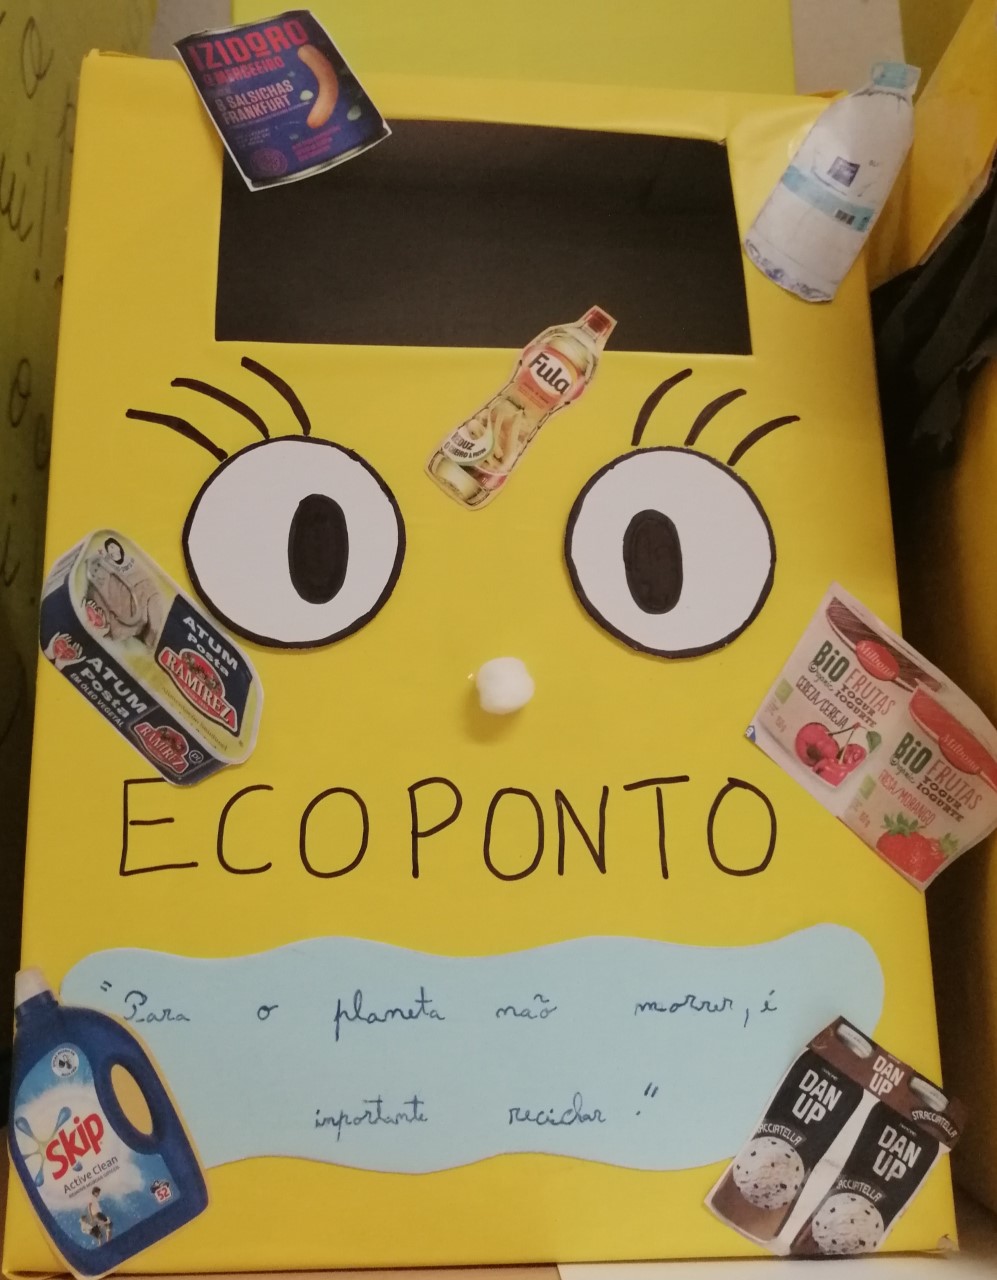 IZIDORO
O MERCEEIRO
8 SALSICHAS
FRANKFURT
Fula
ATUM
Posta
RAMIREZ
ATUM
Posta
EM ÓLEO VEGETAL
RAMIREZ
Milbona
BiO FRUTAS
Organic YOGUR
IOGURTE
CEREZA/CEREJA
Milbona
BiO FRUTAS
Organic YOGUR
IOGURTE
FRESA/MORANGO
ECOPONTO
"Para o planeta não morrer, é
importante reciclar."
Skip
Active Clean
52
DAN
UP
STRACCIATELLA
DAN
UP
ACCIATELLA
DAN
UP
ACCIATELLA